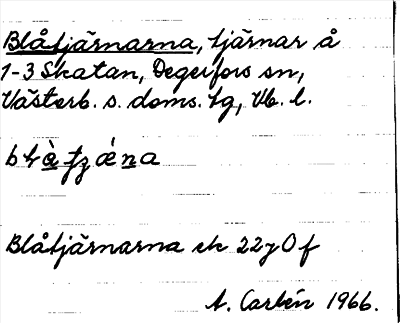 Blåtjärnarna, tjärnar å
1-3 Skatan, Degerfors sn,
Västerb. s. doms. tg, Vb. l.
Blåtjärnarna ek 22 y 0 f
A. Carlén 1966.